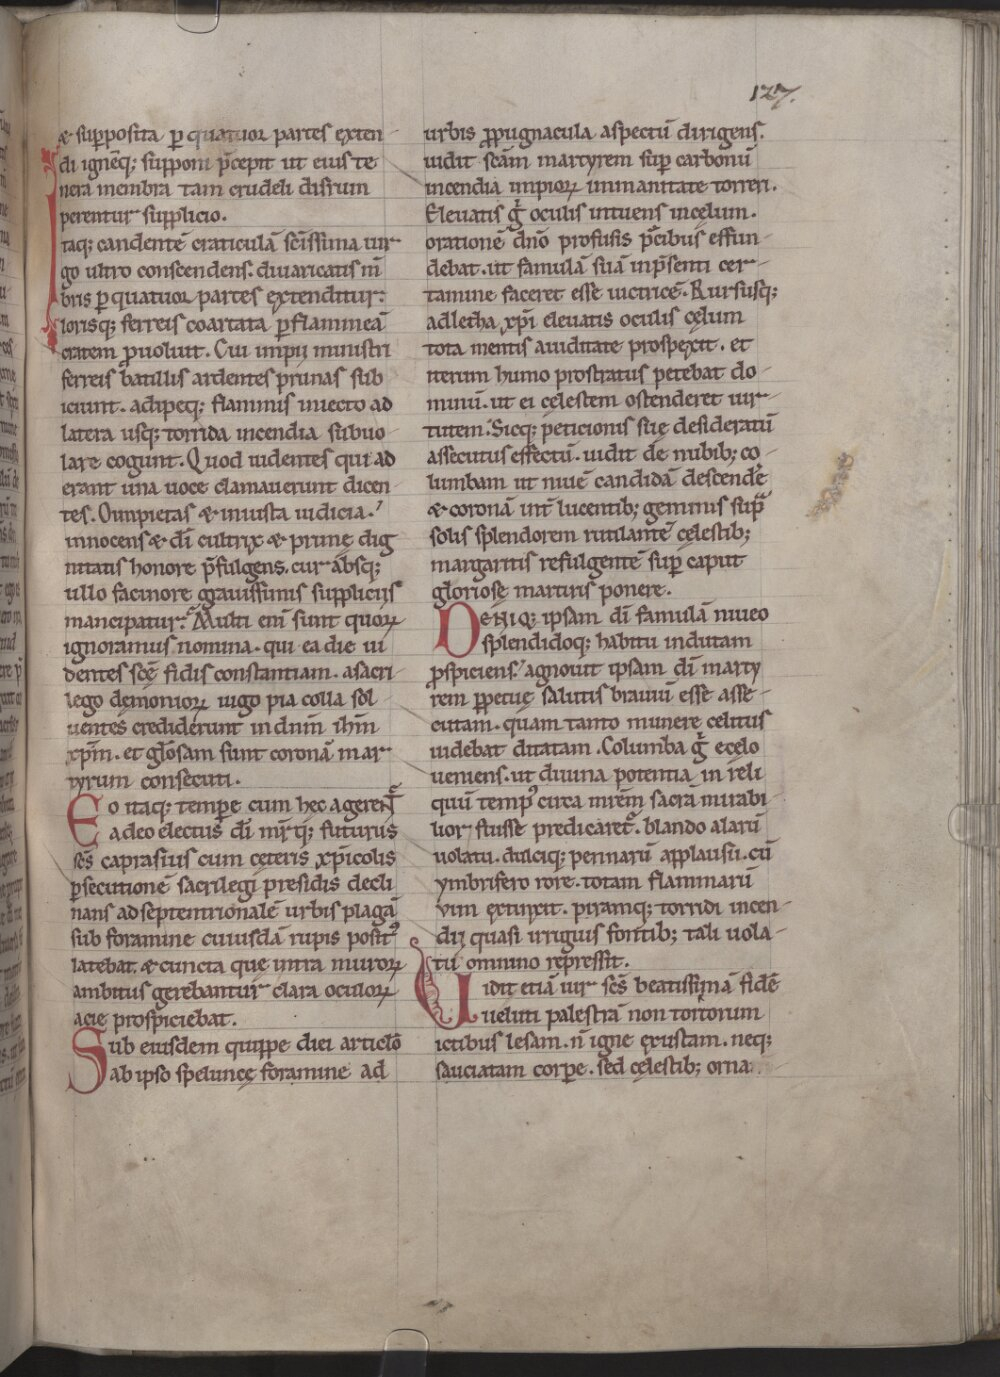 127.
& supposita ꝑ quatuoꝝ partes exten-
di ignēq; supponi p̄cepit ut eius te
nera membra tam crudeli disrum
perentur supplicio.
Itaq; candentē craticulā sc̄issima uir-
go ultro conscendens. diuaricatis mē
bris ꝑ quatuor partes extenditur.
lorisq; ferreis coartata ꝑ flammeā
cratem ꝓuoluit. Cui impii ministri
ferreis batillis ardentes prunas sub
iciunt. adipeq; flammis iniecto ad
latera usq; torrida incendia subuo
lare cogunt. Quod uidentes qui ad
erant una uoce clamauerunt dicen-
tes. O impietas & iniusta iudicia.
innocens & dī cultrix & prime dig
nitatis honore p̄fulgens. cur absq;
ullo facinore grauissimis suppliciis
mancipatur? Multi enī sunt quoꝝ
ignoramus nomina. qui ea die ui
dentes scē fidis constantiam. a sacri-
lego demonioꝝ iugo pia colla sol
uentes crediderunt in dn̄m ihm̄
xp̄m. et glōsam sunt coronā mar-
tyrum consecuti.
Eo itaq; tempe cum hęc agerent᷑
adeo electus dī mr̄tyq; futurus
scs̄ caprasius cum cęteris xp̄icolis
ꝑsecutionē sacrilegi presidis decli
nans ad septentrionalē urbis plagā
sub foramine cuiusdā rupis posit᷒
latebat. & cuncta que intra muroꝝ
ambitus gerebantur clara oculoꝝ
acie prospiciebat.
Sub eiusdem quippe diei articlō
ab ipso speluncę foramine ad
urbis ꝓpugnacula aspectū dirigens.
uidit scām martyrem sup carbonū
incendia impioꝝ immanitate torreri.
Eleuatis ḡ oculis intuens in celum.
orationē dn̄o profusis p̄cibus effun-
debat. ut famulā suā in p̄senti cer-
tamine faceret esse uictricē. Rursusq;
ad letha xp̄i eleuatis oculis cęlum
tota mentis auiditate prospexit. et
iterum humo prostratus petebat do-
minū. ut ei cęlestem ostenderet uir-
tutem. Sicq; peticionis suę desideratū
assecutus effectū. uidit de nubib; co-
lumbam ut niuē candidā descendē
& coronā int̄ lucentib; gemmis supͣ
solis splendorem rutilantē cęlestib;
margaritis refulgentē sup caput
gloriosę martiris ponere.
Deniq; ipsam dī famulā niueo
splendidoq; habitu indutam
ꝓspiciens. agnouit ipsam dī marty
rem ꝑpetuę salutis brauiū esse asse-
cutam. quam tanto munere celitus
uidebat ditatam. Columba ḡ e celo
ueniens. ut diuina potentia in reli
quū temp᷒ circa mr̄em sacrā mirabi-
lior fuisse predicaret᷑. blando alarū
uolatu. dulciq; pennarū applausu. cū
ymbrifero rore. totam flammarū
vim extinxit. piramq; torridi incen-
dij quasi irriguis fontib; tali uola-
tu omnino repressit.
Uidit etiā uir scs̄ beatissimā fidē
ueluti palestrā non tortorum
ictibus lesam. n̄ igne exustam. neq;
sauciatam corpe. sed cęlestib; orna